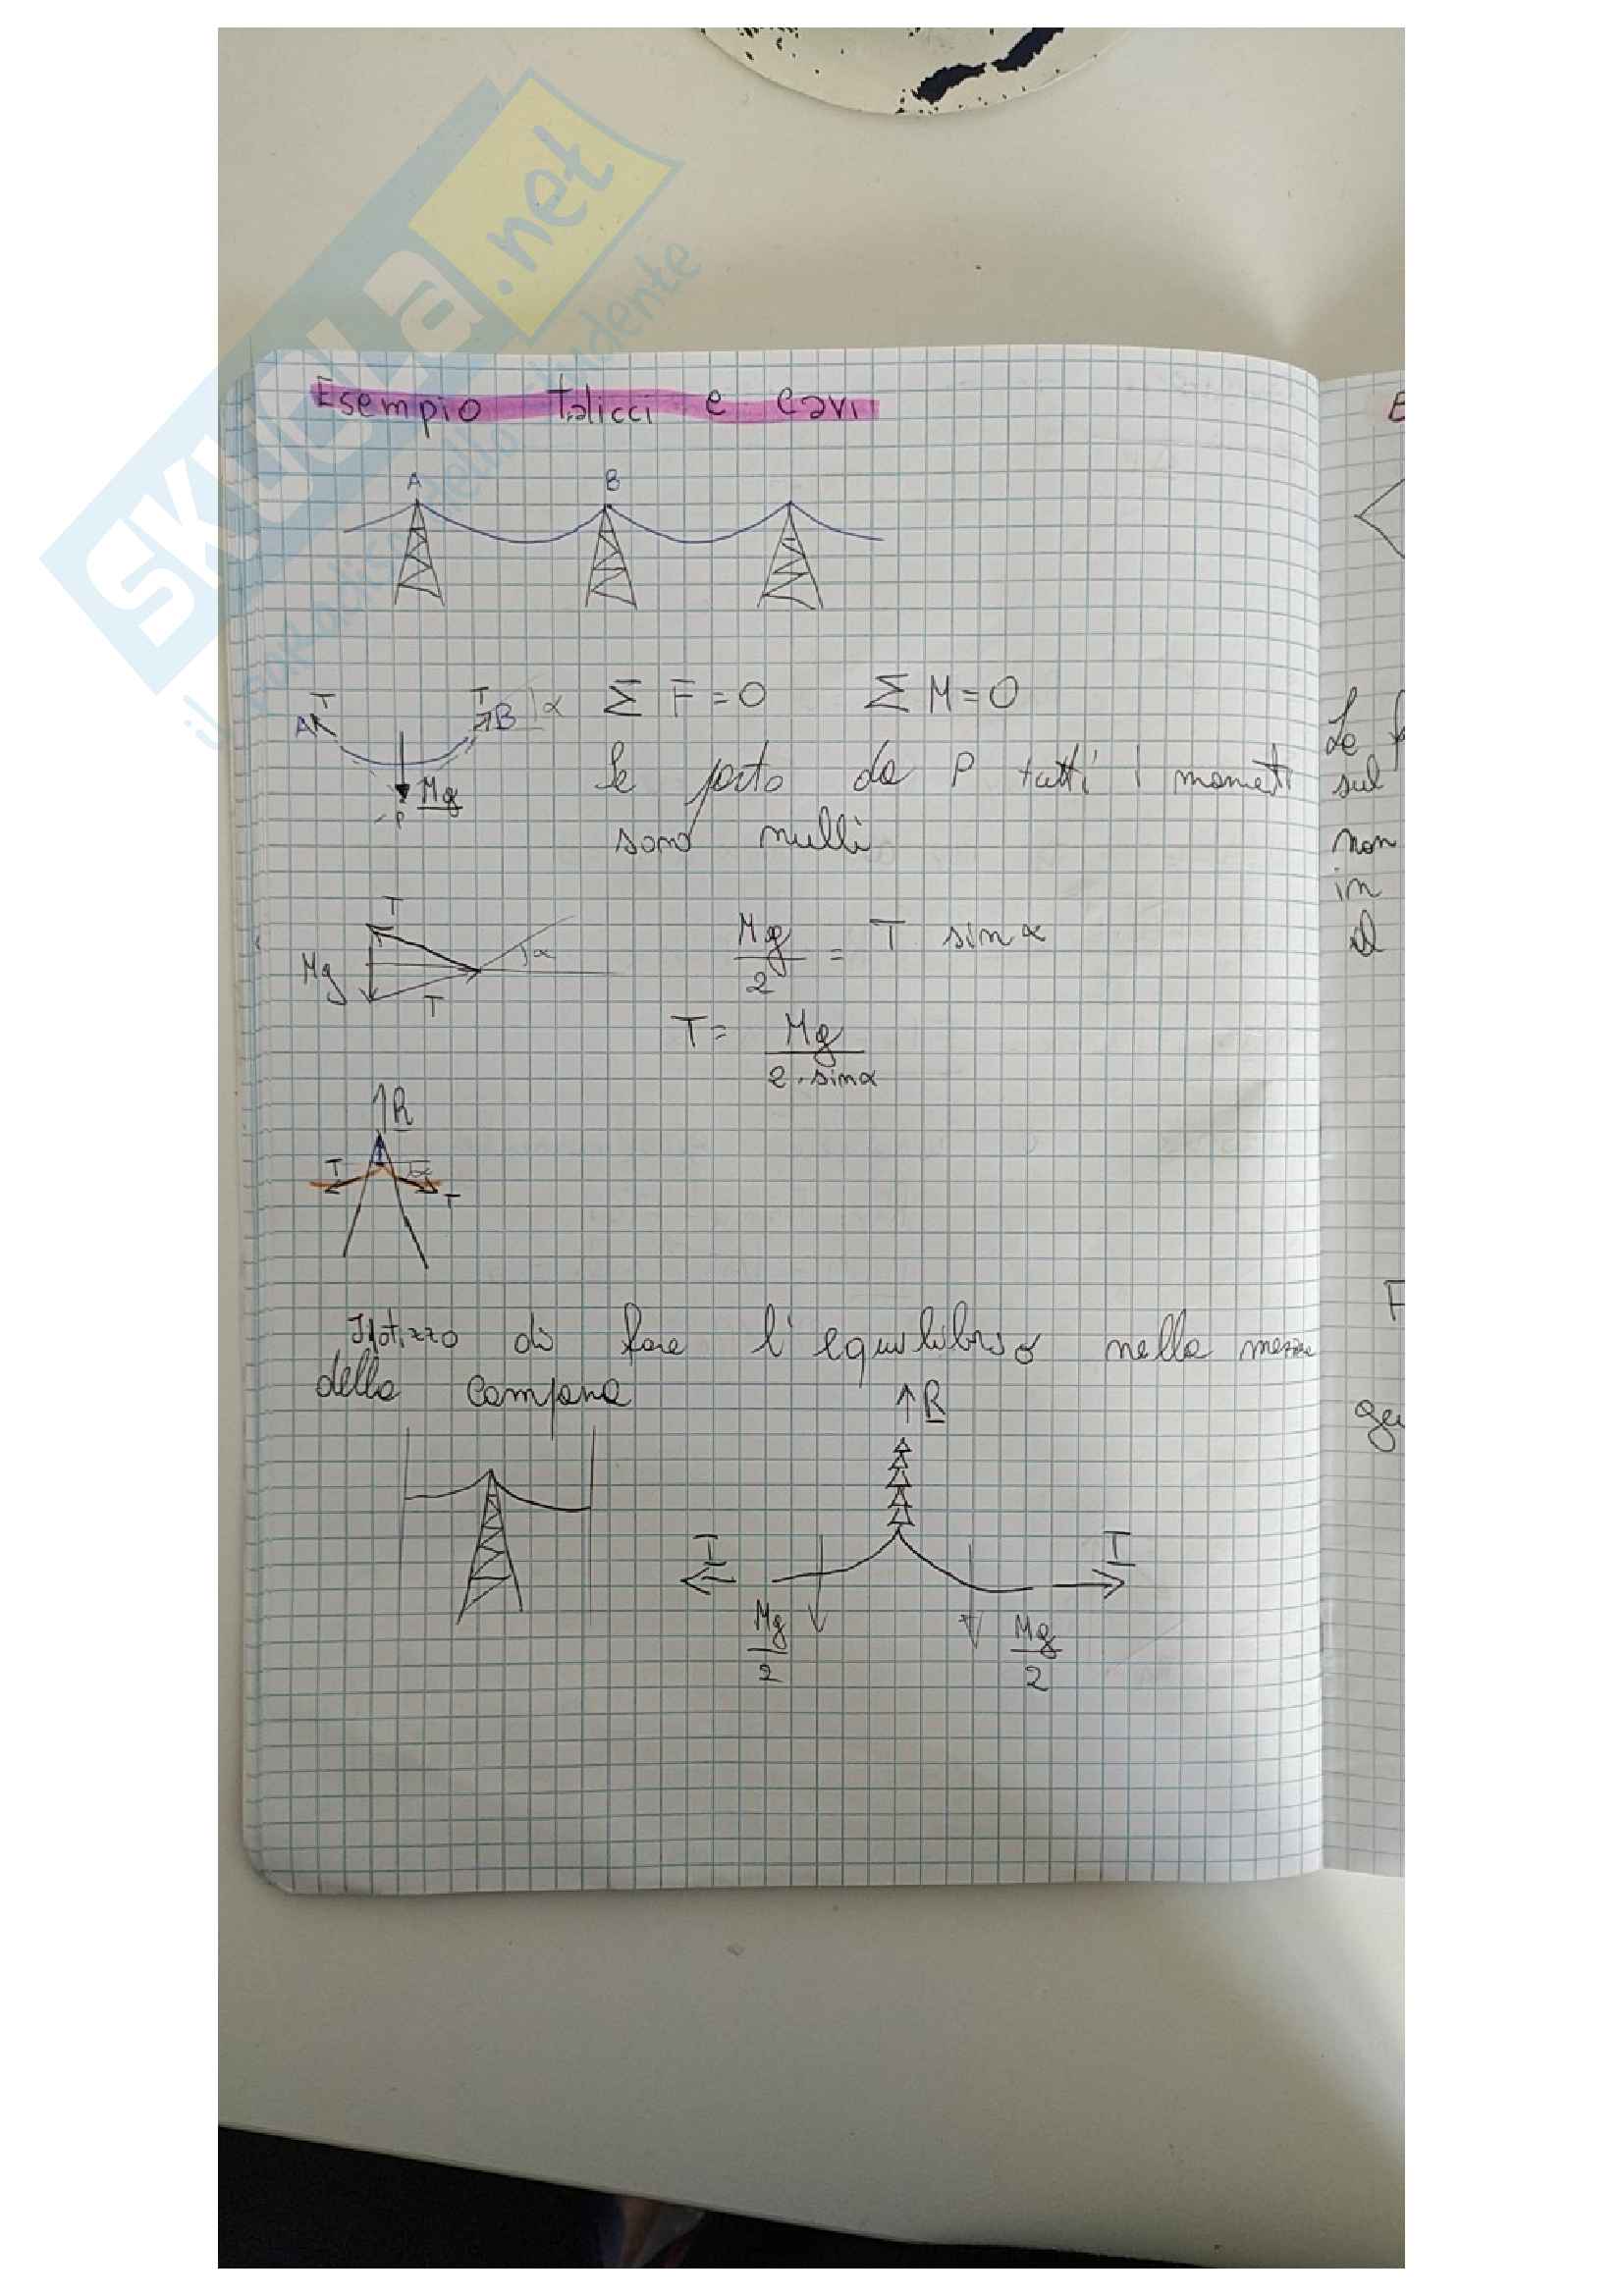 SKUOLA.net
il paradiso dello studente
Esempio Talicci e cavi
A B
T T α Σ F̄ = 0 Σ M = 0
A B
Mg
P
Se parto da P tutti i momenti
sono nulli
T
α
Mg
T
Mg/2 = T sin α
T = Mg/2·sinα
R
T α T
Ipotizzo di fare l'equilibrio nella
della campana
R
T T
Mg/2 Mg/2
E
Le
sul
non
in
il
F